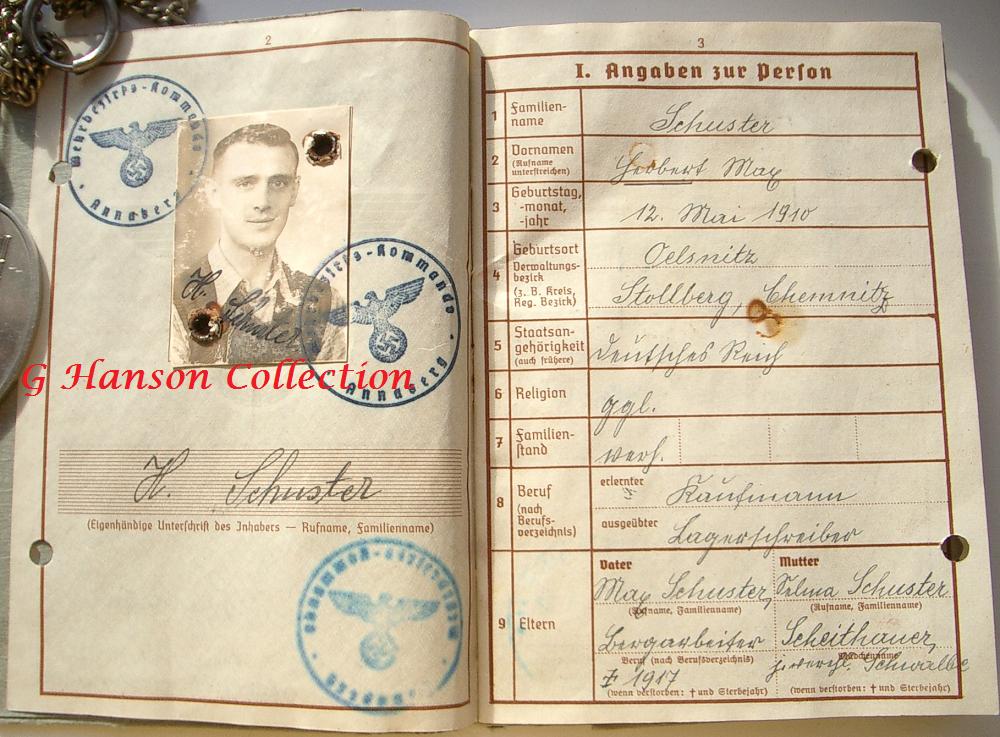 2
Wehrbezirks-Kommando
Annaberg
H. Schuster
Wehrbezirks-Kommando
Annaberg
G Hanson Collection
H. Schuster
(Eigenhändige Unterschrift des Inhabers — Rufname, Familienname)
Wehrbezirks-Kommando
3
I. Angaben zur Person
1 Familien-
name
Schuster
2 Vornamen
(Rufname
unterstreichen)
Herbert Max
3 Geburtstag,
-monat,
-jahr
12. Mai 1910
4 Geburtsort
Verwaltungs-
bezirk
(z. B. Kreis,
Reg. Bezirk)
Oelsnitz
Stollberg, Chemnitz
5 Staatsan-
gehörigkeit
(auch frühere)
Deutsches Reich
6 Religion
ggl.
7 Familien-
stand
verh.
8 Beruf
(nach
Berufs-
verzeichnis)
erlernter
Kaufmann
ausgeübter
Lagerschreiber
9 Eltern
Vater
Max Schuster
(Rufname, Familienname)
Bergarbeiter
Beruf (nach Berufsverzeichnis)
1917
(wenn verstorben: † und Sterbejahr)
Mutter
Selma Schuster
(Rufname, Familienname)
Scheithauer,
Mädchenname
Schwalbe
(wenn verstorben: † und Sterbejahr)